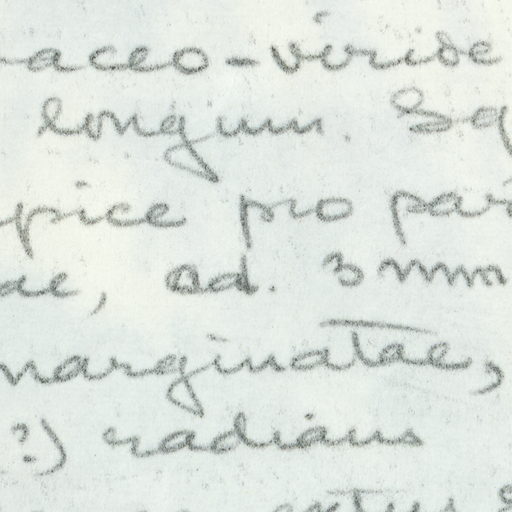 -aceo-viride
longum. Sq
pice pro par
ae, ad. 3 mm
marginatae,
?) radians